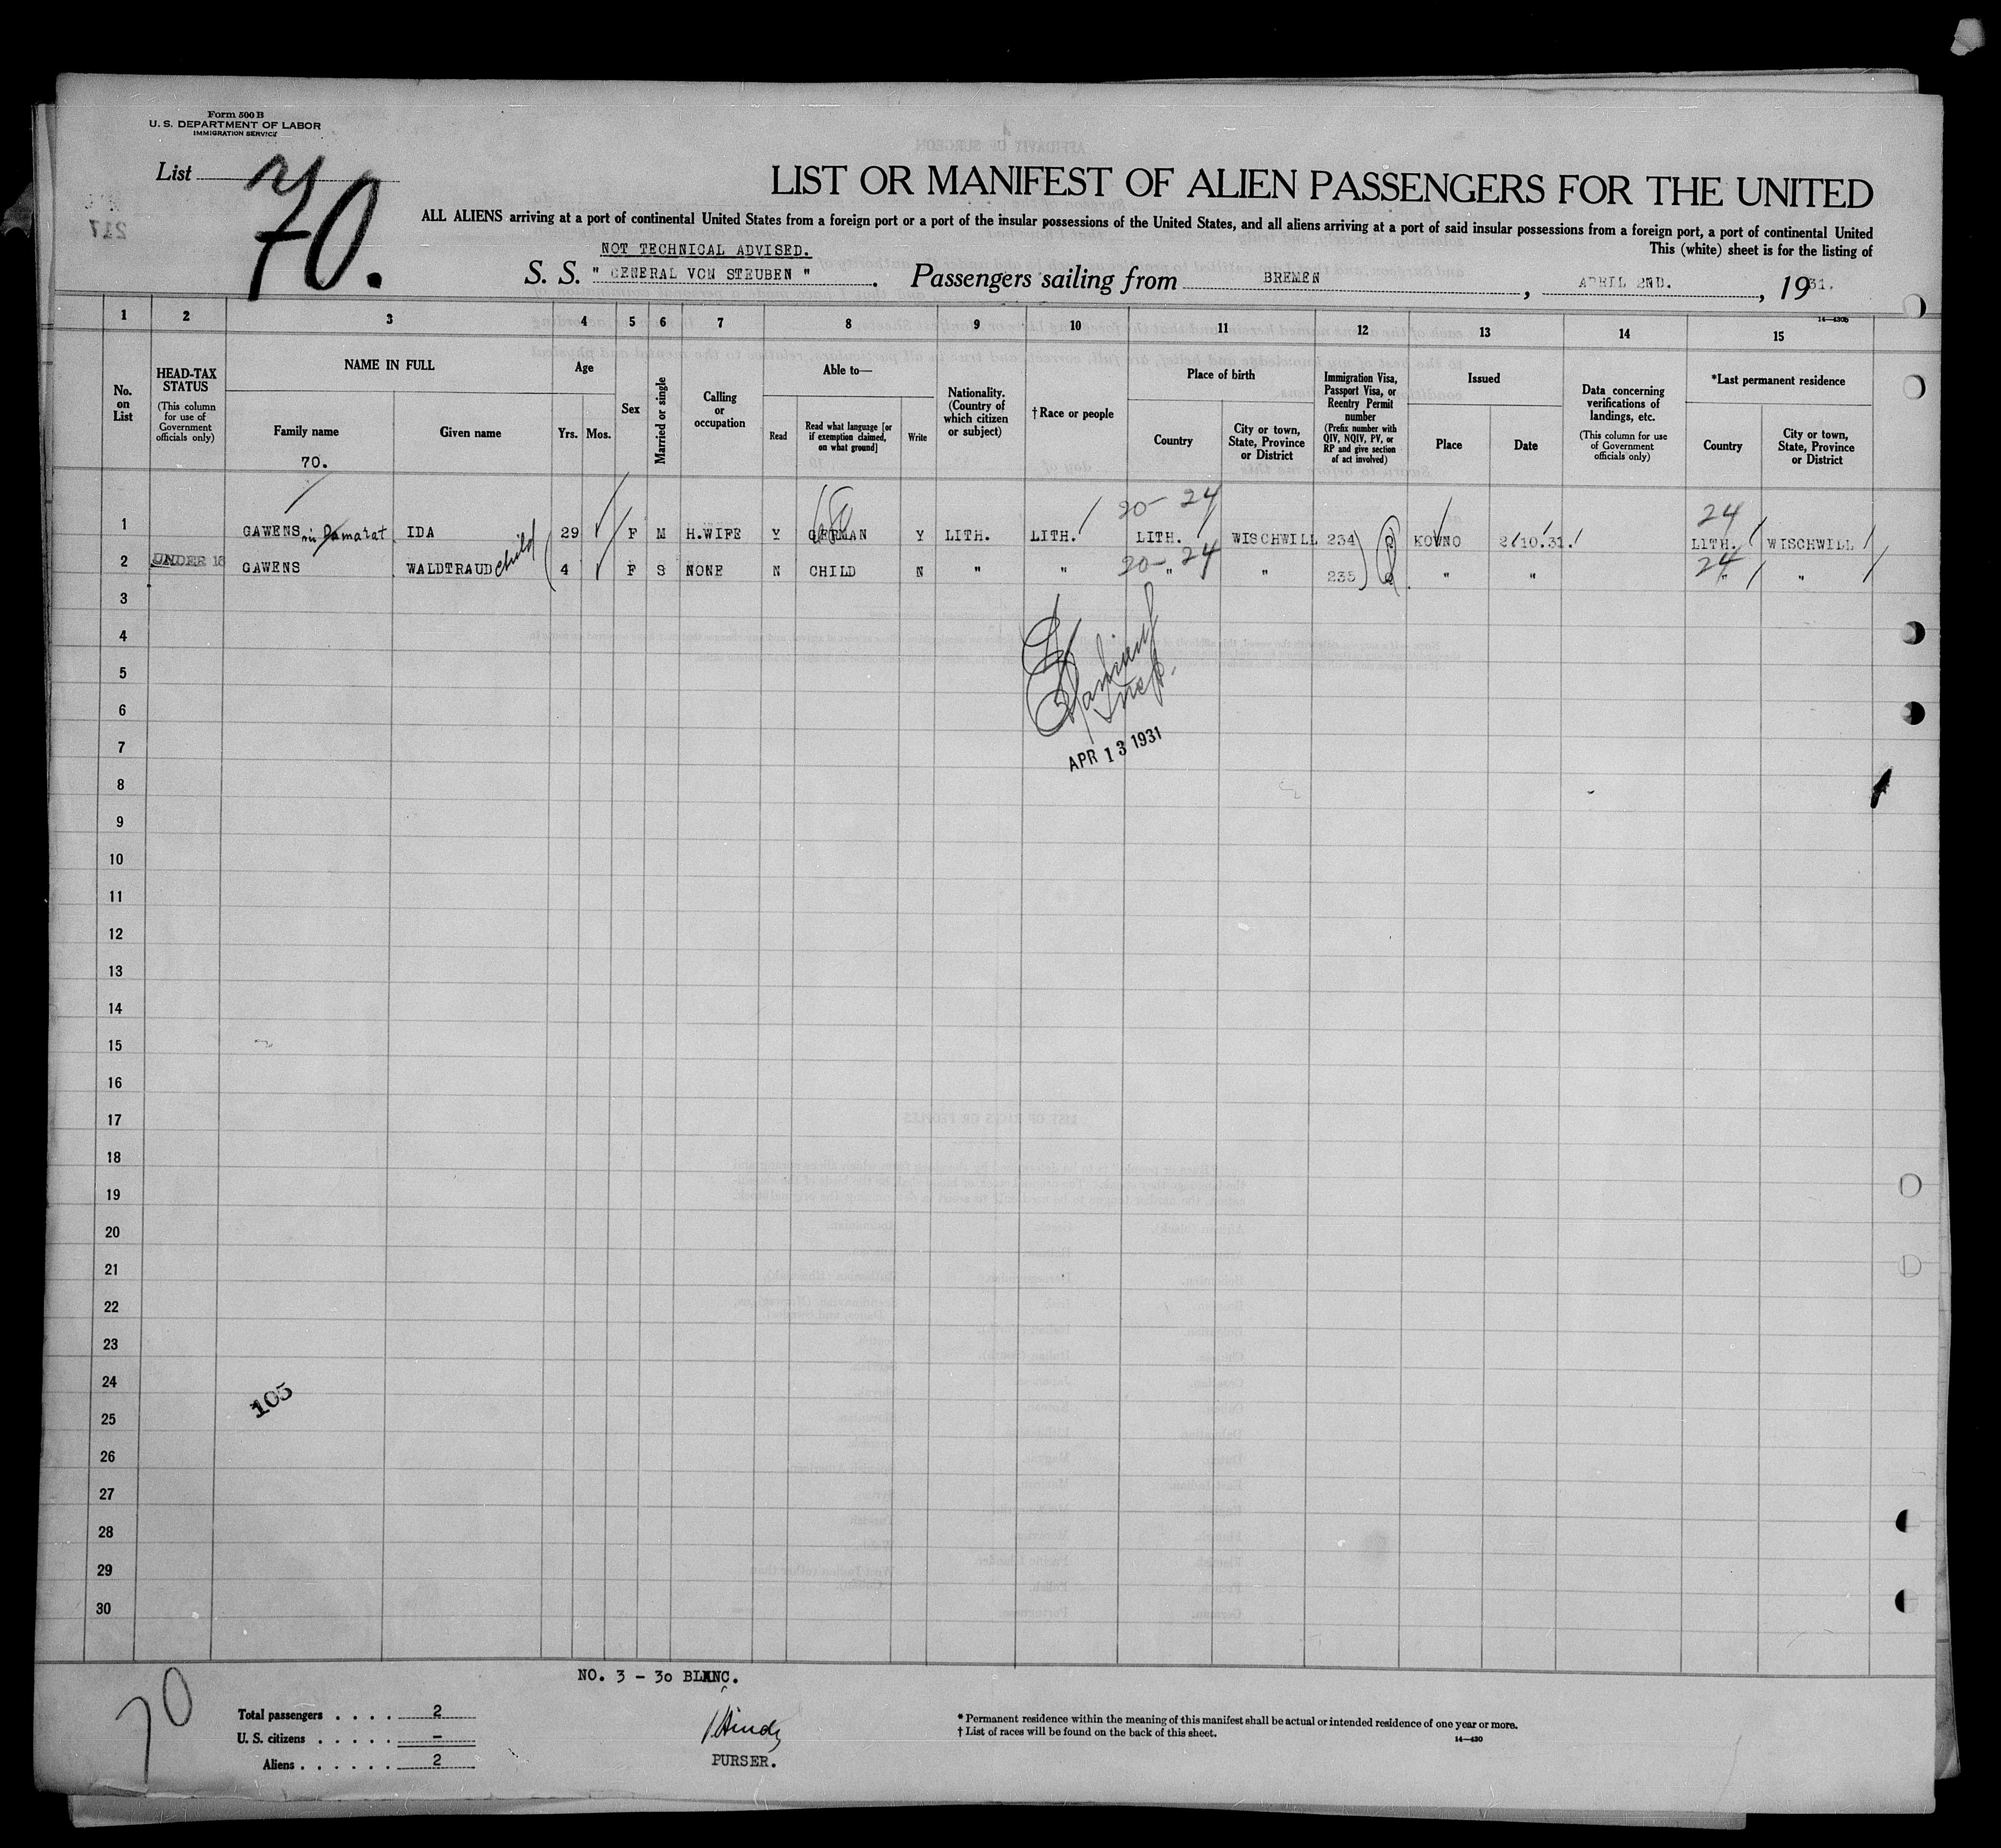 Form 500 B
U. S. DEPARTMENT OF LABOR
IMMIGRATION SERVICE
List 70.
LIST OR MANIFEST OF ALIEN PASSENGERS FOR THE UNITED
ALL ALIENS arriving at a port of continental United States from a foreign port or a port of the insular possessions of the United States, and all aliens arriving at a port of said insular possessions from a foreign port, a port of continental United
This (white) sheet is for the listing of
NOT TECHNICAL ADVISED.
S. S. " GENERAL VON STEUBEN ". Passengers sailing from BREMEN, APRIL 2ND., 1931.
1 2 3 4 5 6 7 8 9 10 11 12 13 14 15
14—430b
No. on List
HEAD-TAX STATUS
(This column for use of Government officials only)
NAME IN FULL
Family name
Given name
70.
Age
Yrs. Mos.
Sex
Married or single
Calling or occupation
Able to—
Read
Read what language [or if exemption claimed, on what ground]
Write
Nationality. (Country of which citizen or subject)
† Race or people
Place of birth
Country
City or town, State, Province or District
Immigration Visa, Passport Visa, or Reentry Permit number
(Prefix number with QIV, NQIV, PV, or RP and give section of act involved)
Issued
Place
Date
Data concerning verifications of landings, etc.
(This column for use of Government officials only)
*Last permanent residence
Country
City or town, State, Province or District
20- 24
24
1 GAWENS IDA 29 F M H.WIFE Y GERMAN Y LITH. LITH. LITH. WISCHWILL 234 KOVNO 2/10.31. LITH. WISCHWILL
20- 24
24
2 UNDER 16 GAWENS WALDTRAUD child 4 F S NONE N CHILD N " " " " 235 " " " "
3
4
5
6
Insp.
7
APR 13 1931
8
9
10
11
12
13
14
15
16
17
18
19
20
21
22
23
24
105
25
26
27
28
29
30
NO. 3 - 30 BLANC.
70
Total passengers . . . . 2
U. S. citizens . . . . . —
Aliens . . . . . . 2
PURSER.
* Permanent residence within the meaning of this manifest shall be actual or intended residence of one year or more.
† List of races will be found on the back of this sheet.
14—430